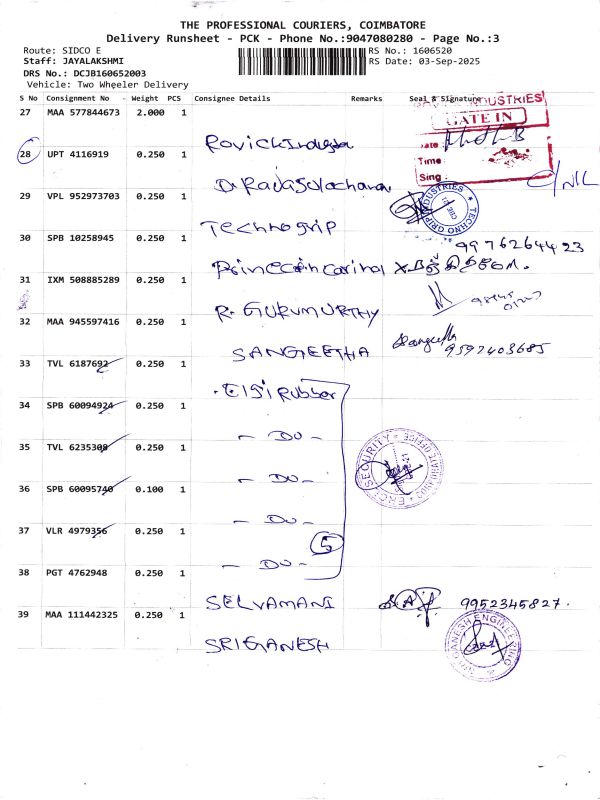 THE PROFESSIONAL COURIERS, COIMBATORE
Delivery Runsheet - PCK - Phone No.:9047080280 - Page No.:3
Route: SIDCO E
RS No.: 1606520
Staff: JAYALAKSHMI
RS Date: 03-Sep-2025
DRS No.: DCJB160652003
Vehicle: Two Wheeler Delivery
S No Consignment No - Weight PCS Consignee Details Remarks Seal & Signature
27 MAA 577844673 2.000 1
USTRIES
GATE IN
Date
Time
Sing
28 UPT 4116919 0.250 1
29 VPL 952973703 0.250 1 Technogrip
TECHNO GRIP INDUSTRIES
30 SPB 10258945 0.250 1
9976264423
31 IXM 508885289 0.250 1 R. GURUMURTHY
32 MAA 945597416 0.250 1 SANGEETHA Sangeetha
9597403685
33 TVL 6187692 0.250 1 Elgi Rubber
34 SPB 60094924 0.250 1 - DO -
35 TVL 6235308 0.250 1 - DO -
SECURITY
36 SPB 60095740 0.100 1 - DO -
37 VLR 4979356 0.250 1 - DO -
5
38 PGT 4762948 0.250 1 SELVAMANI 9952345827.
39 MAA 111442325 0.250 1 SRI GANESH
SRI GANESH ENGINEERING